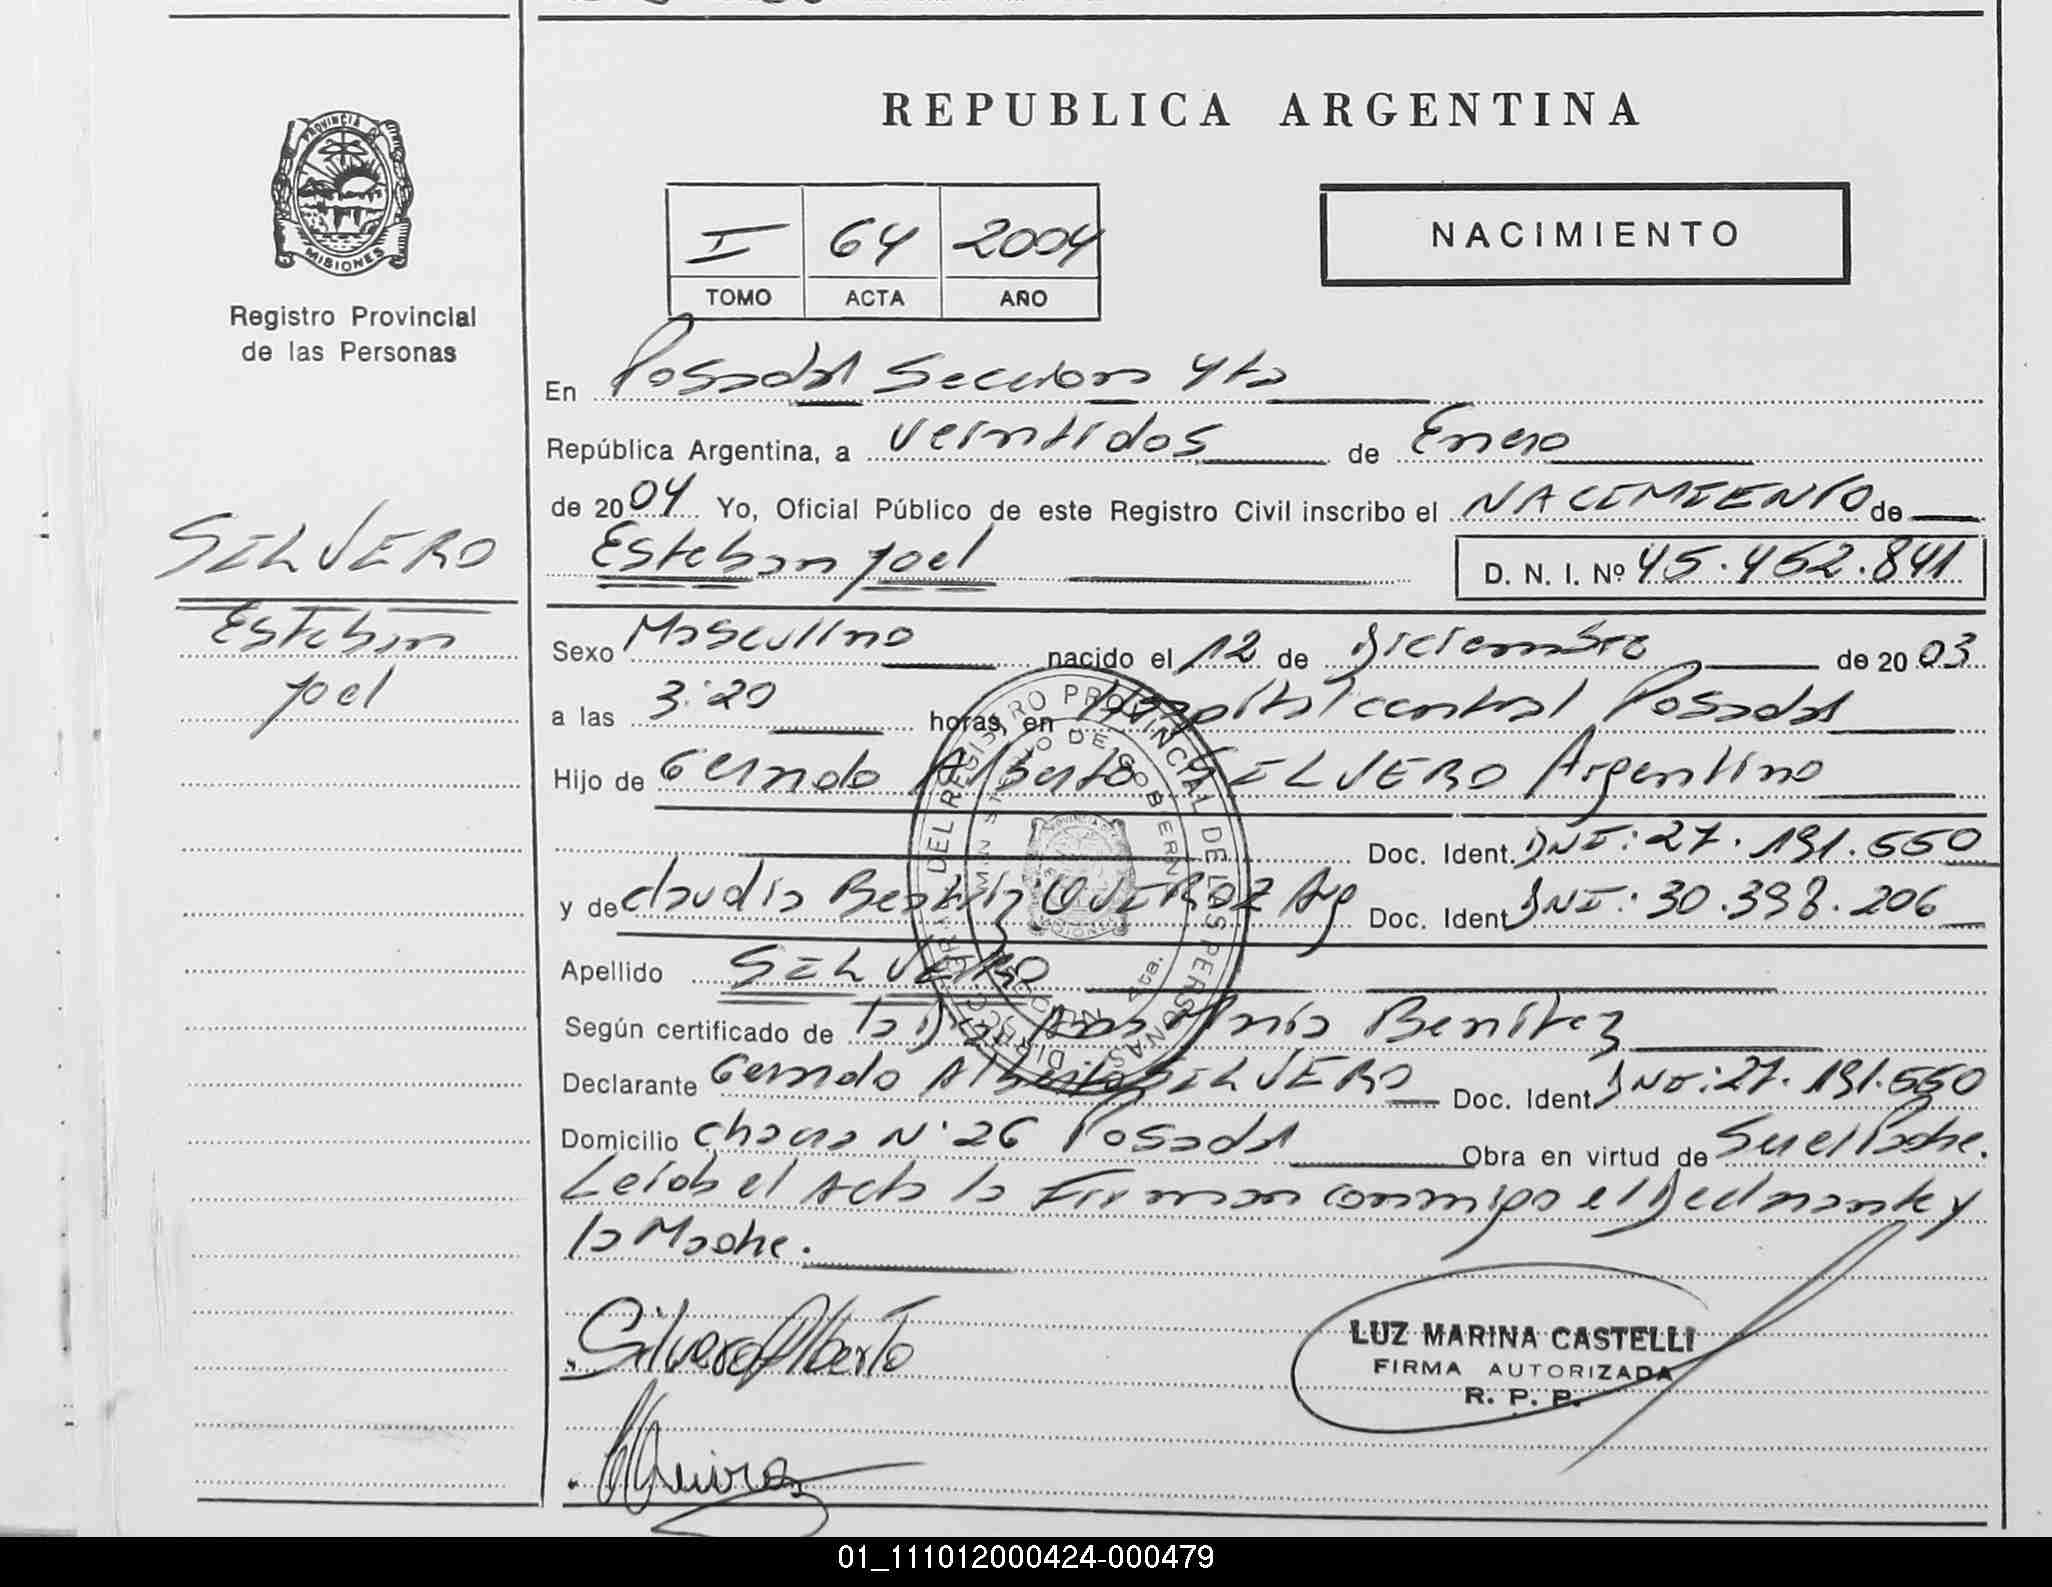 REPUBLICA ARGENTINA
PROVINCIA DE
MISIONES
Registro Provincial
de las Personas
I 64 2004
TOMO ACTA AÑO
NACIMIENTO
En Posadas Seccion 4ta
República Argentina, a veintidos de Enero
de 2004 Yo, Oficial Público de este Registro Civil inscribo el NACIMIENTO de
Esteban Joel D. N. I. Nº 45.452.841
SILVERO
Esteban
Joel
Sexo Masculino nacido el 12 de Diciembre de 2003
a las 3:20 horas, en Hospital central Posadas
Hijo de Gerardo Alberto SILVERO Argentino
Doc. Ident. DNI: 27.191.550
y de Claudia Beatriz QUEIROZ Arg Doc. Ident. DNI: 30.398.206
Apellido SILVERO
Según certificado de la Dra. Ana María Benitez
Declarante Gerardo Alberto SILVERO Doc. Ident. DNI: 27.191.550
Domicilio chacra N° 26 Posadas Obra en virtud de Ser el Padre.
Leida el Acta la Firman conmigo el Declarante y
la Madre.
Silvero Alberto
LUZ MARINA CASTELLI
FIRMA AUTORIZADA
R. P. P.
Queiroz
DIRECC. GRAL. DEL REGISTRO PROVINCIAL DE LAS PERSONAS
MINISTERIO DE GOBIERNO
4ta.
01_111012000424-000479